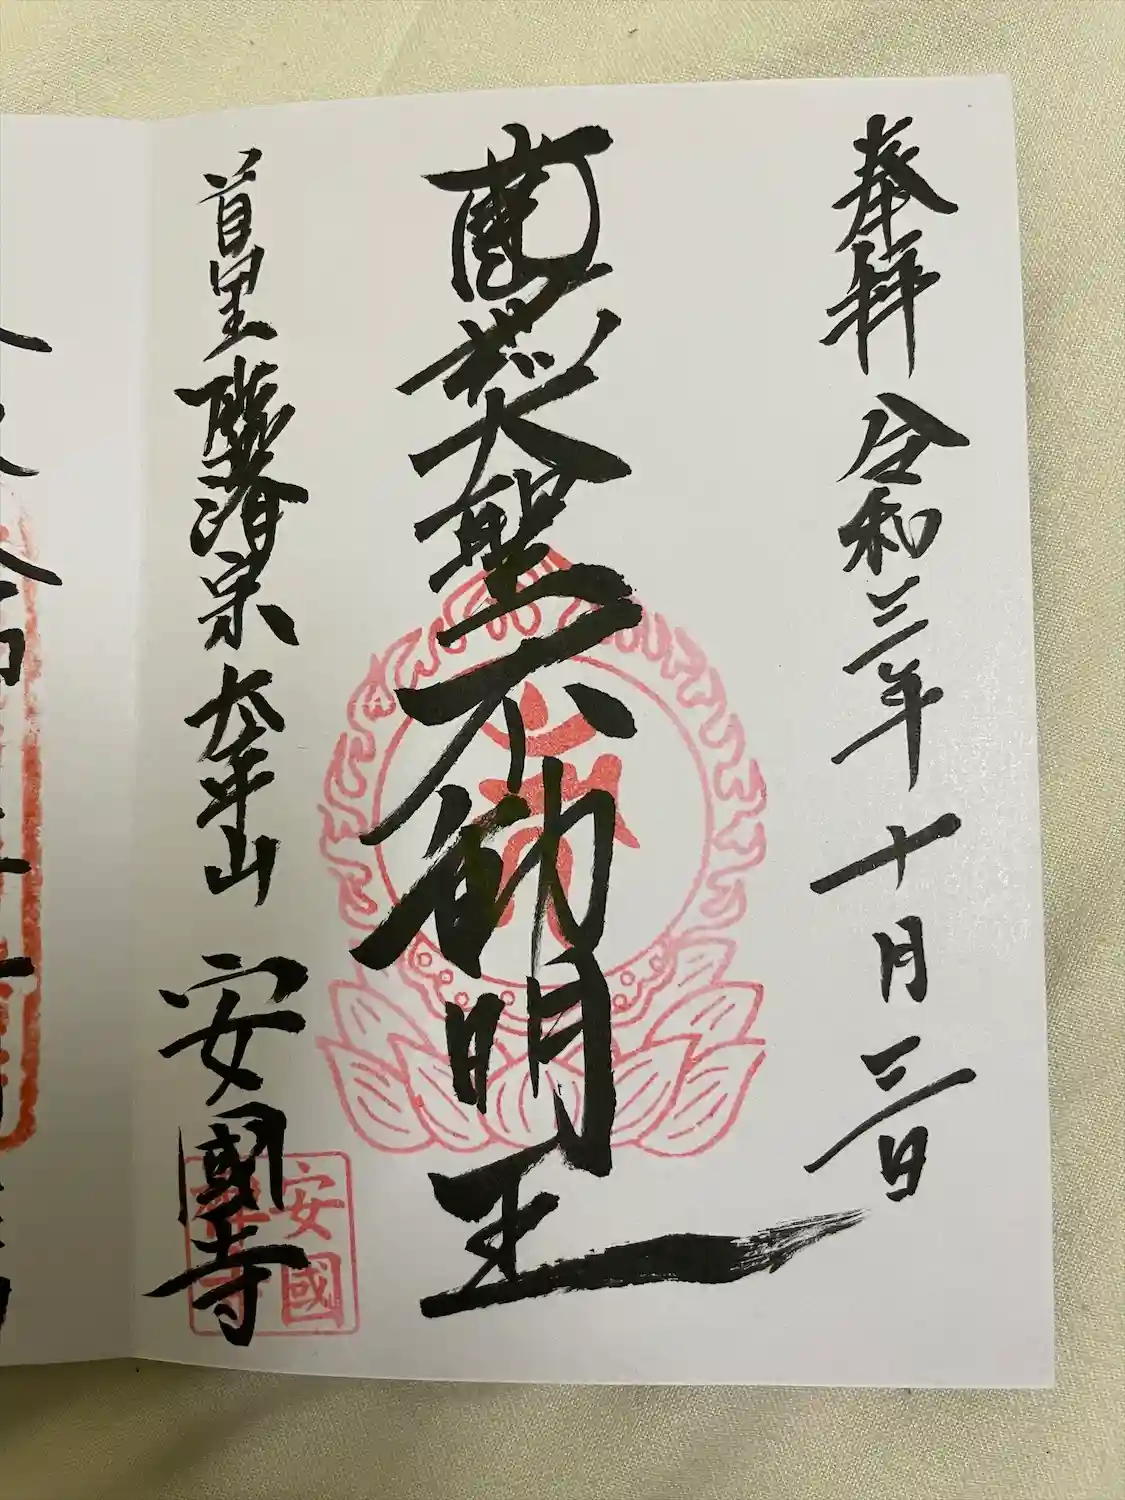 奉拜 令和三年 十月 三日
大聖不動明王
首里 臨済宗 太平山 安國寺
安國